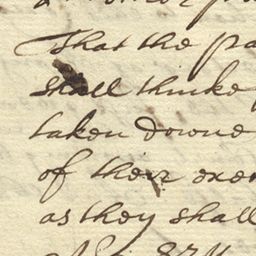 That the pa
shall thinke
taken downe
of their exe
as they shall